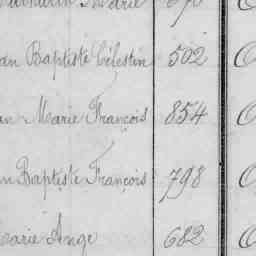 Marie
an Baptiste Célestin 502
an Marie François 854
n Baptiste François 798
Marie Ange 682